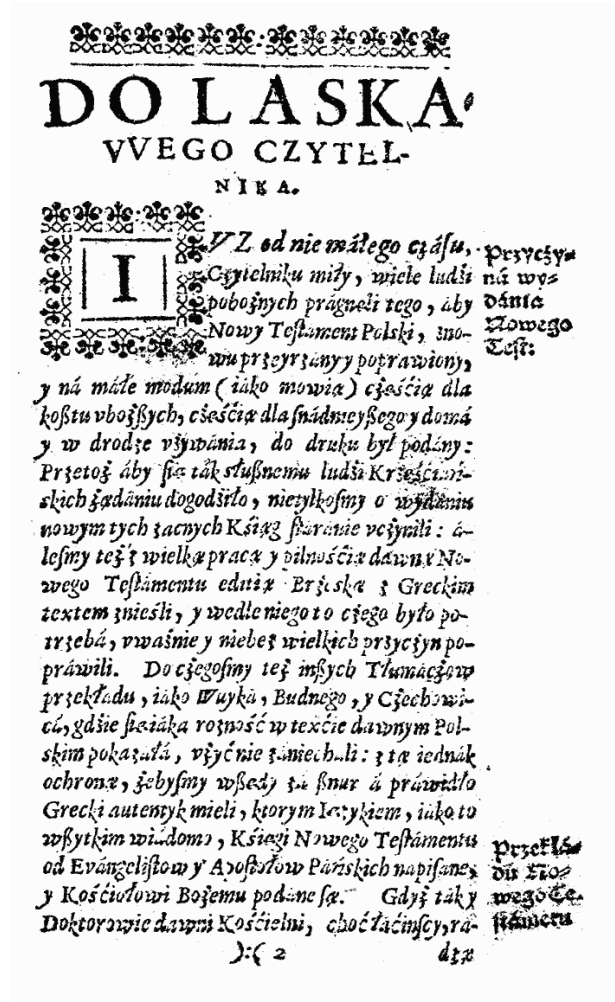 DO LASKA
VVEGO CZYTEL-
NIKA.
IVZ od nie małego czásu,
Czytelniku miły, wiele ludźi
pobożnych prágnęli tego, áby
Nowy Testáment Polski, zno-
wu przeyrzány y popráwiony,
y ná máłe modum (iáko mowią) cżęśćią dla
kosztu vboższych, cżęśćią dla snádnieyszego y domá
y w drodze vżywánia, do druku był podány:
Przetoż áby się ták słusznemu ludźi Krześćiáń-
skich żądániu dogodźiło, nietylkosmy o wydániu
nowym tych zacnych Kśiąg stáranie vcżynili: á-
lesmy też z wielką pracą y pilnośćią dawną No-
wego Testámentu editią Brzeską z Greckim
textem znieśli, y wedle niego to cżego było po-
trzebá, vważnie y niebez wielkich przycżyn po-
práwili. Do cżegosmy też inszych Tłumácżow
przekłádu, iáko Wuyká, Budnego, y Cżechowi-
cá, gdźie się iáka rożność w texćie dawnym Pol-
skim pokazáłá, vżyć nie zániecháli: z tą iednák
ochroną, żebysmy wszędy zá sznur á práwidło
Grecki autentyk mieli, ktorym Ięzykiem, iáko to
wszytkim wiádomo, Kśięgi Nowego Testámentu
od Ewángelistow y Apostołow Páńskich nápisane,
y Kośćiołowi Bożemu podáne są. Gdyż táky
Doktorowie dawni Kośćielni, choć łáćinscy, rá-
):( 2 dzą
Przycży-
ná wy-
dánia
Nowego
Test:
Przekłá-
du No-
wego Te-
stámetu